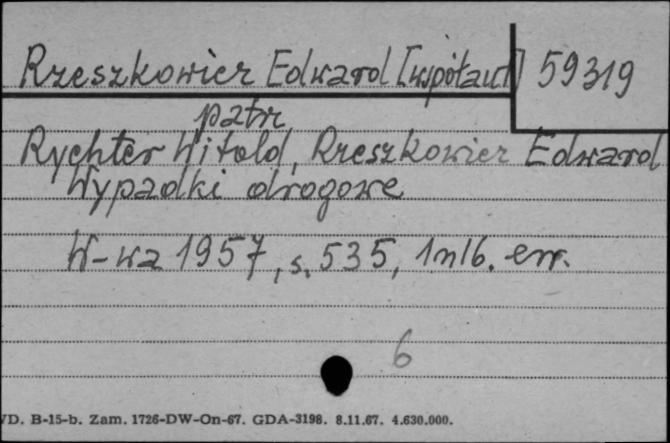 Rzeszkowicz Edward [współaut] 59319
patrz
Rychter Witold, Rzeszkowicz Edward
Wypadki drogowe
W-wa 1957, s. 535, 1 nlb. err.
6
VD. B-15-b. Zam. 1726-DW-On-67. GDA-3198. 8.11.67. 4.630.000.